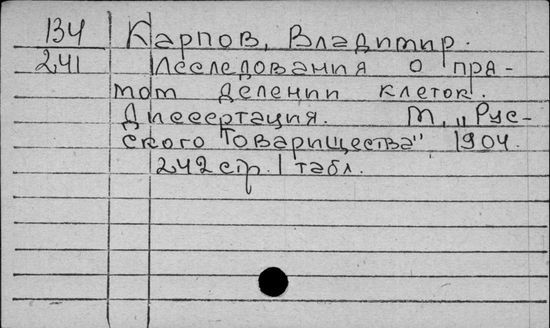 134 Карпов, Владимир.
241 Исследования о пря-
мом делении клеток.
Диссертация. М., „Рус-
ского Товарищества" 1904.
242 стр. 1 табл.